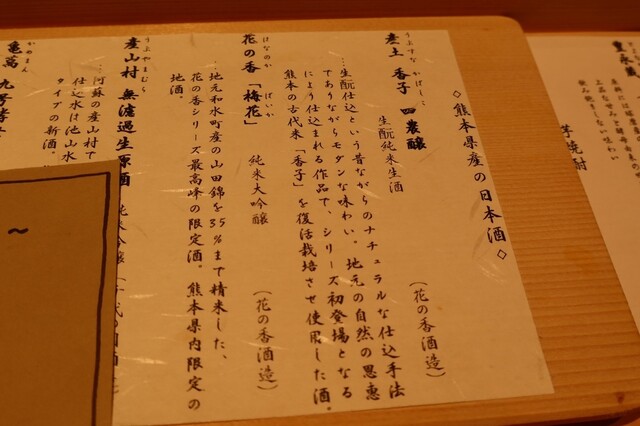 ◇熊本県産の日本酒◇
うぶすな かばしこ
産土 香子 四農醸
生酛純米生酒
(花の香酒造)
…生酛仕込という昔ながらのナチュラルな仕込手法
でありながらモダンな味わい。地元の自然の恩恵
により仕込まれる作品で、シリーズ初登場となる
熊本の古代米「香子」を復活栽培させ使用した酒。
はなのか ばいか
花の香「梅花」
純米大吟醸
(花の香酒造)
…地元和水町産の山田錦を35%まで精米した、
花の香シリーズ最高峰の限定酒。熊本県内限定の
地酒。
うぶやまむら
産山村 無濾過生原酒
純米吟醸
…阿蘇の産山村で
仕込水は池山水
タイプの新酒。
かめまん
亀萬 九号酵
豊永蔵
芋焼酎
～